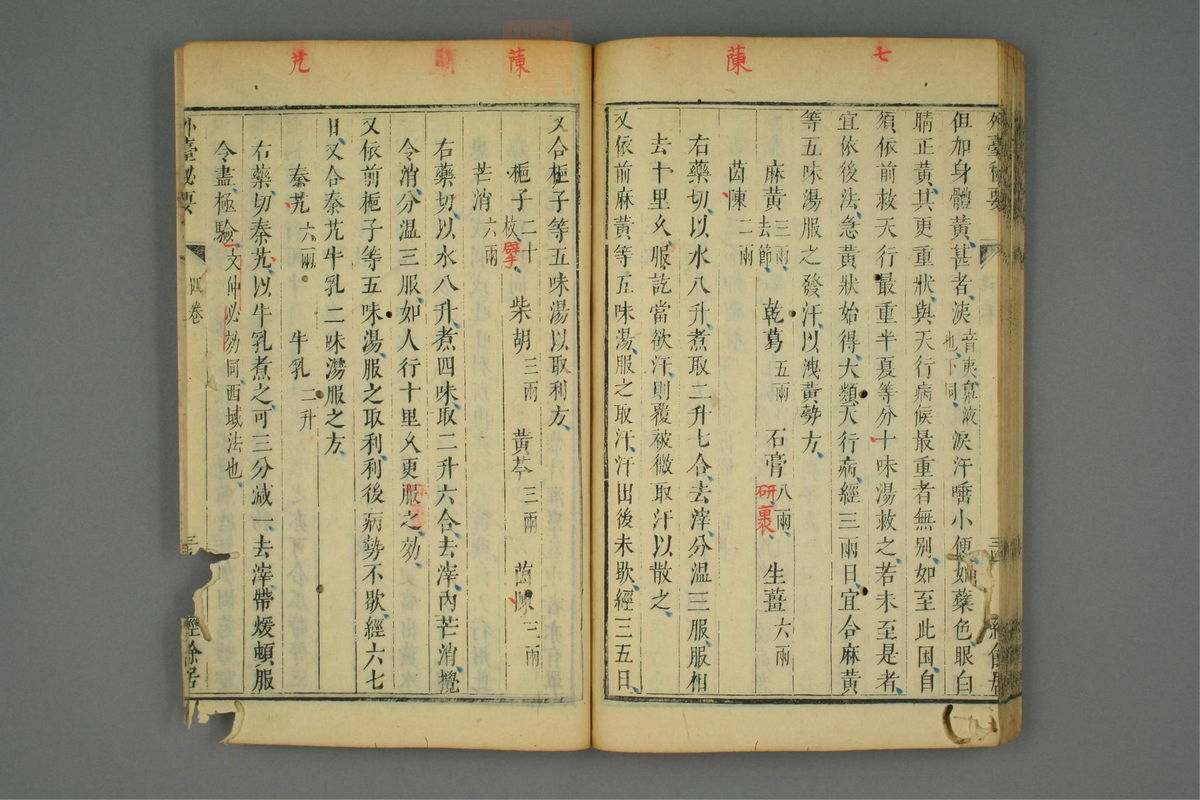 七
蘭
外臺秘要
但加身體黃甚者洟音夷鼻液也下同淚汗唾小便如蘗色眼白
睛正黃其更重狀與天行病候最重者無别如至此困自
須依前救天行最重半夏等分十味湯救之若未至是者
宜依後法急黃狀始得大類天行病經三兩日宜合麻黃
等五味湯服之發汗以洩黃勢方
麻黃三兩去節 乾葛五兩 石膏八兩研裹 生薑六兩
茵陳二兩
右藥切以水八升煮取二升七合去滓分温三服服相
去十里乆服訖當欲汗則覆被微取汗以散之
又依前麻黃等五味湯服之取汗汗出後未歇經三五日
蘭
艽
又合梔子等五味湯以取利方
梔子二十枚擘 柴胡三兩 黃芩三兩 茵陳三兩
芒消六兩
右藥切以水八升煮四味取二升六合去滓內芒消攪
令消分温三服如人行十里乆更服之效
又依前梔子等五味湯服之取利利後病勢不歇經六七
日又合秦艽牛乳二味湯服之方
秦艽六兩 牛乳二升
右藥切秦艽以牛乳煮之可三分減一去滓帶煖頓服
令盡極驗文仲必効同西域法也
外臺秘要 四卷 經餘居